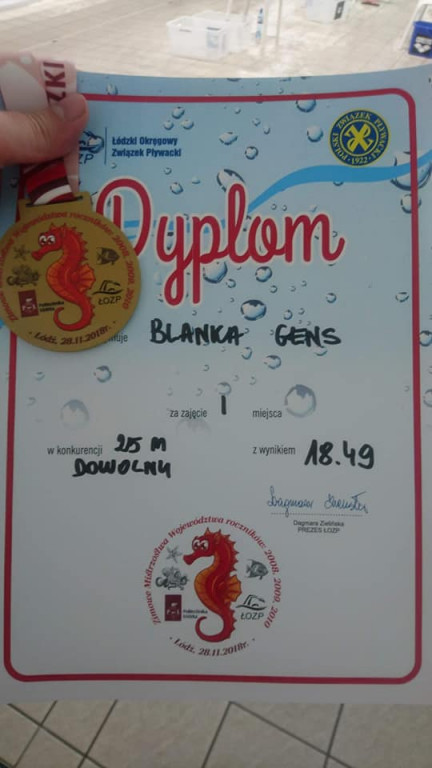 ZKI
ŁOZP
Łódzki Okręgowy
Związek Pływacki
POLSKI ZWIĄZEK PŁYWACKI
• 1922 •
Dyplom
Zimowe Mistrzostwa Województwa roczników 2008, 2009, 2010
Politechnika
Łódzka
ŁOZP
• Łódź, 28.11.2018r. •
muje BLANKA GENS
za zajęcie I miejsca
w konkurencji 25 M
DOWOLNY
z wynikiem 18.49
Dagmara Zielińska
PREZES ŁOZP
Zimowe Mistrzostwa Województwa roczników 2008, 2009, 2010
Politechnika
Łódzka
ŁOZP
• Łódź, 28.11.2018r. •